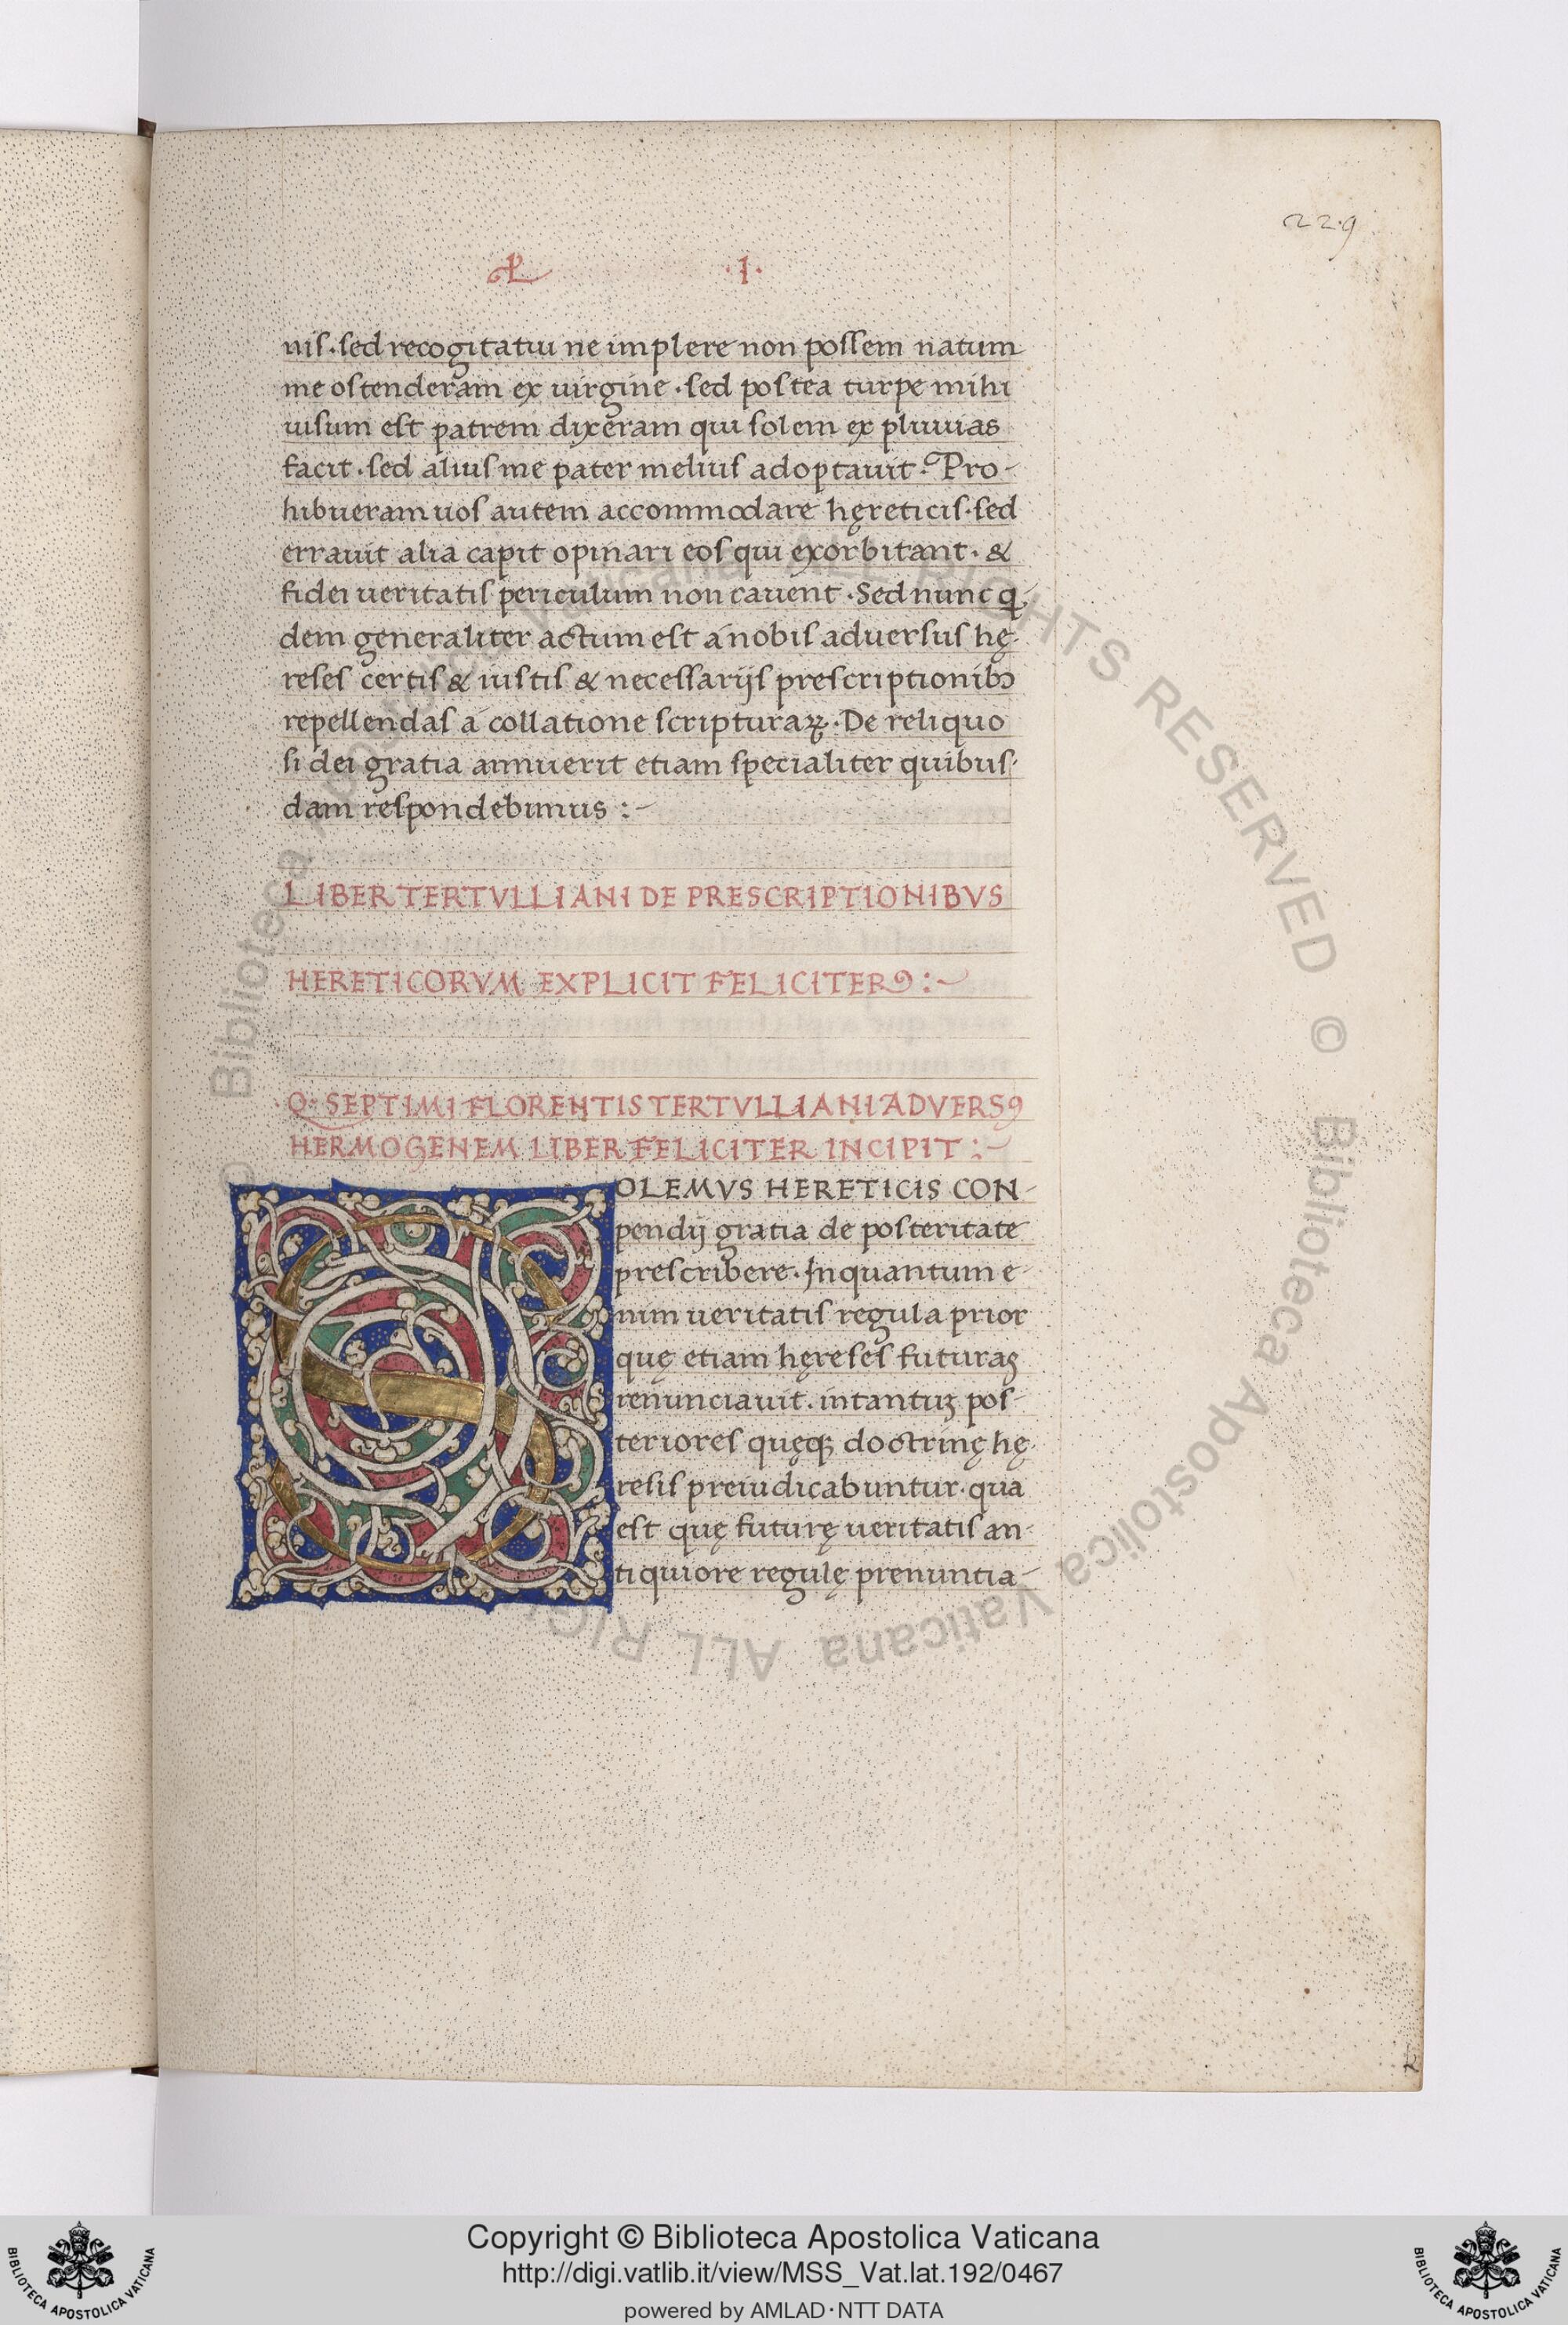 229
.I.
nis·sed recogitatiu ne implere non possem natum
me ostenderam ex uirgine·sed postea turpe mihi
uisum est patrem dixeram qui solem ex pluuias
facit·sed alius me pater melius adoptauit·Pro-
hibueram uos autem accommodare hęreticis·sed
errauit alia capit opinari eos qui exorbitant·&
fidei ueritatis periculum non cauent·Sed nunc q
dem generaliter actum est á nobis aduersus hę-
reses certis & iustis & necessarijs prescriptionibꝫ
repellendas á collatione scripturaꝝ·De reliquo
si dei gratia annuerit etiam specialiter quibus-
dam respondebimus :-
LIBER TERTVLLIANI DE PRESCRIPTIONIBVS
HERETICORVM EXPLICIT FELICITER :-
Q· SEPTIMI FLORENTIS TERTVLLIANI ADVERSꝯ
HERMOGENEM LIBER FELICITER INCIPIT :-
SOLEMVS HERETICIS CON-
pendij gratia de posteritate
prescribere·Inquantum e-
nim ueritatis regula prior
quę etiam hęreses futuraꝫ
renunciauit·intantuꝫ pos-
teriores quęqꝫ doctrinę hę-
resis preiudicabuntur·qua
est quę futurę ueritatis an-
tiquiore regulę prenuntia-
© Biblioteca Apostolica Vaticana ALL RIGHTS RESERVED © Biblioteca Apostolica Vaticana ALL RIG
Copyright © Biblioteca Apostolica Vaticana
http://digi.vatlib.it/view/MSS_Vat.lat.192/0467
powered by AMLAD·NTT DATA
BIBLIOTECA APOSTOLICA VATICANA
BIBLIOTECA APOSTOLICA VATICANA